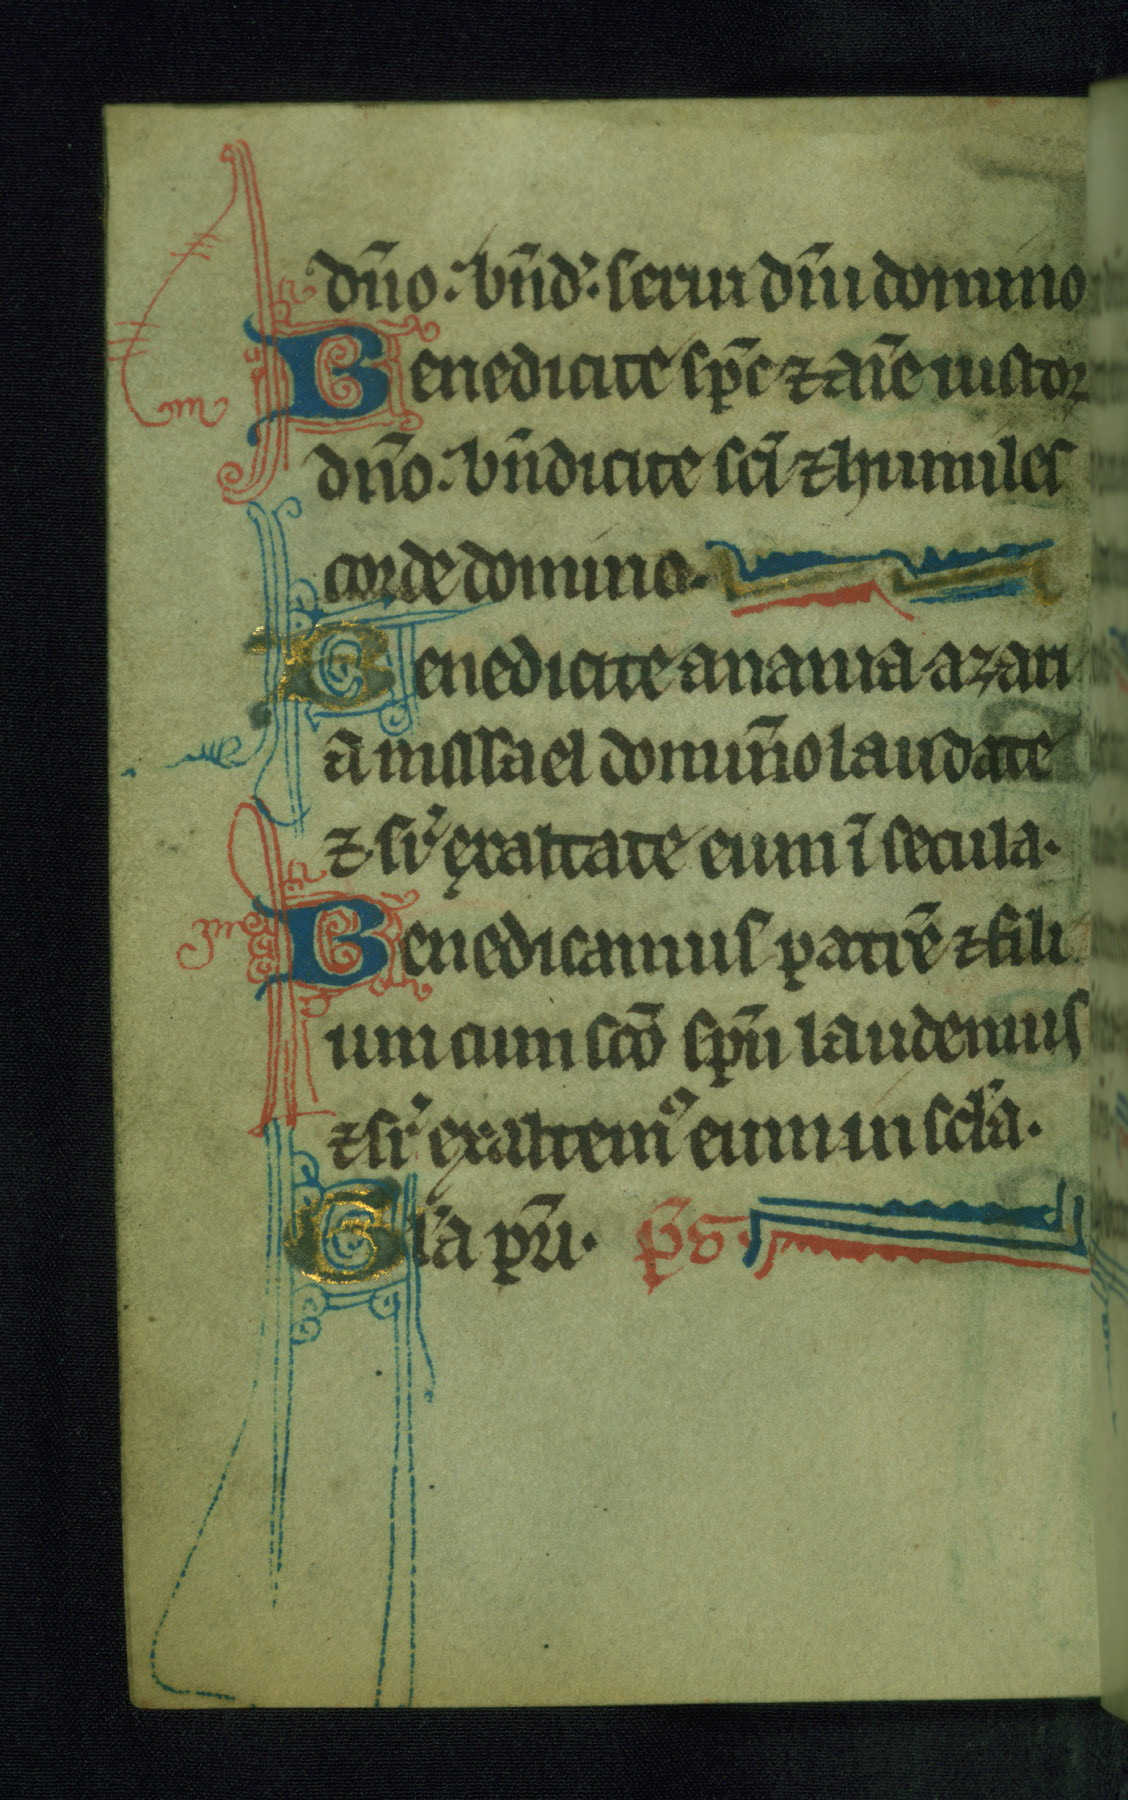 dn̄o. bn̄d. serui dn̄i domino
Benedicite sp̄c ⁊ aīe iustoꝝ
dn̄o. bn̄dicite sc̄i ⁊ humiles
corde domino.
Benedicite anania azari
a misael domin̄o laudate
⁊ sr̄ exaltate eum ī secula.
Benedicamus patrē ⁊ fili
um cum sc̄o sp̄u laudemus
⁊ sr̄ exaltemꝰ eum in scl̄a.
Gl̄a pr̄i. p̄s.